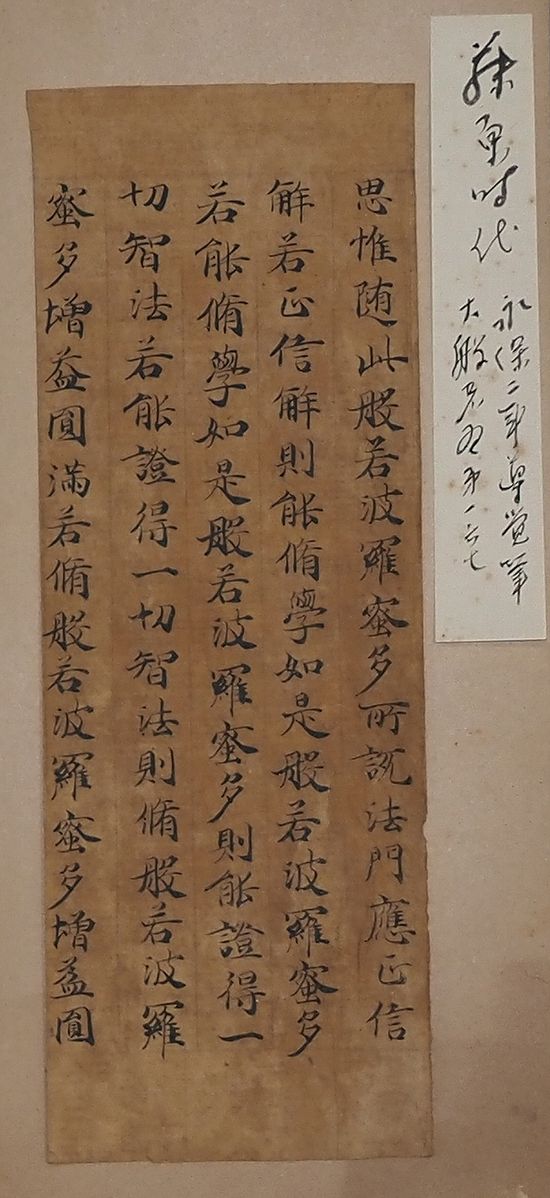 藤原时代
永保二年 覚筆
大般若経第一六七
思惟随此般若波羅蜜多所説法門應正信
解若正信解則能脩學如是般若波羅蜜多
若能脩學如是般若波羅蜜多則能證得一
切智法若能證得一切智法則脩般若波羅
蜜多增益圓滿若脩般若波羅蜜多增益圓